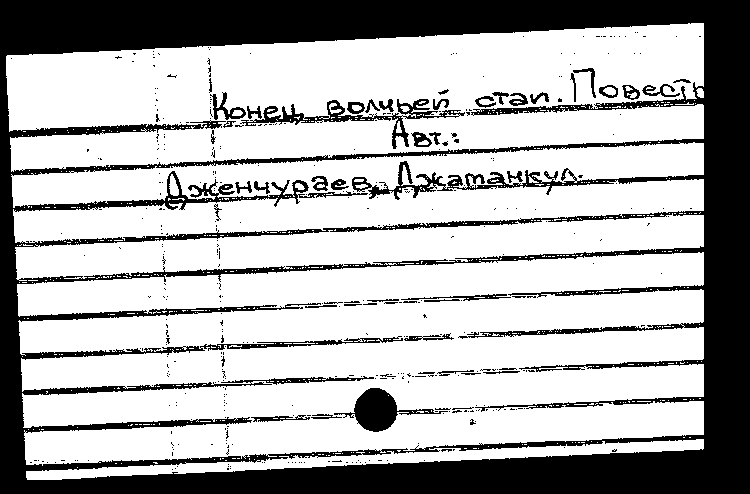 Конец волчьей стаи. Повесть
Авт.:
Дженчураев, Джатанкул.